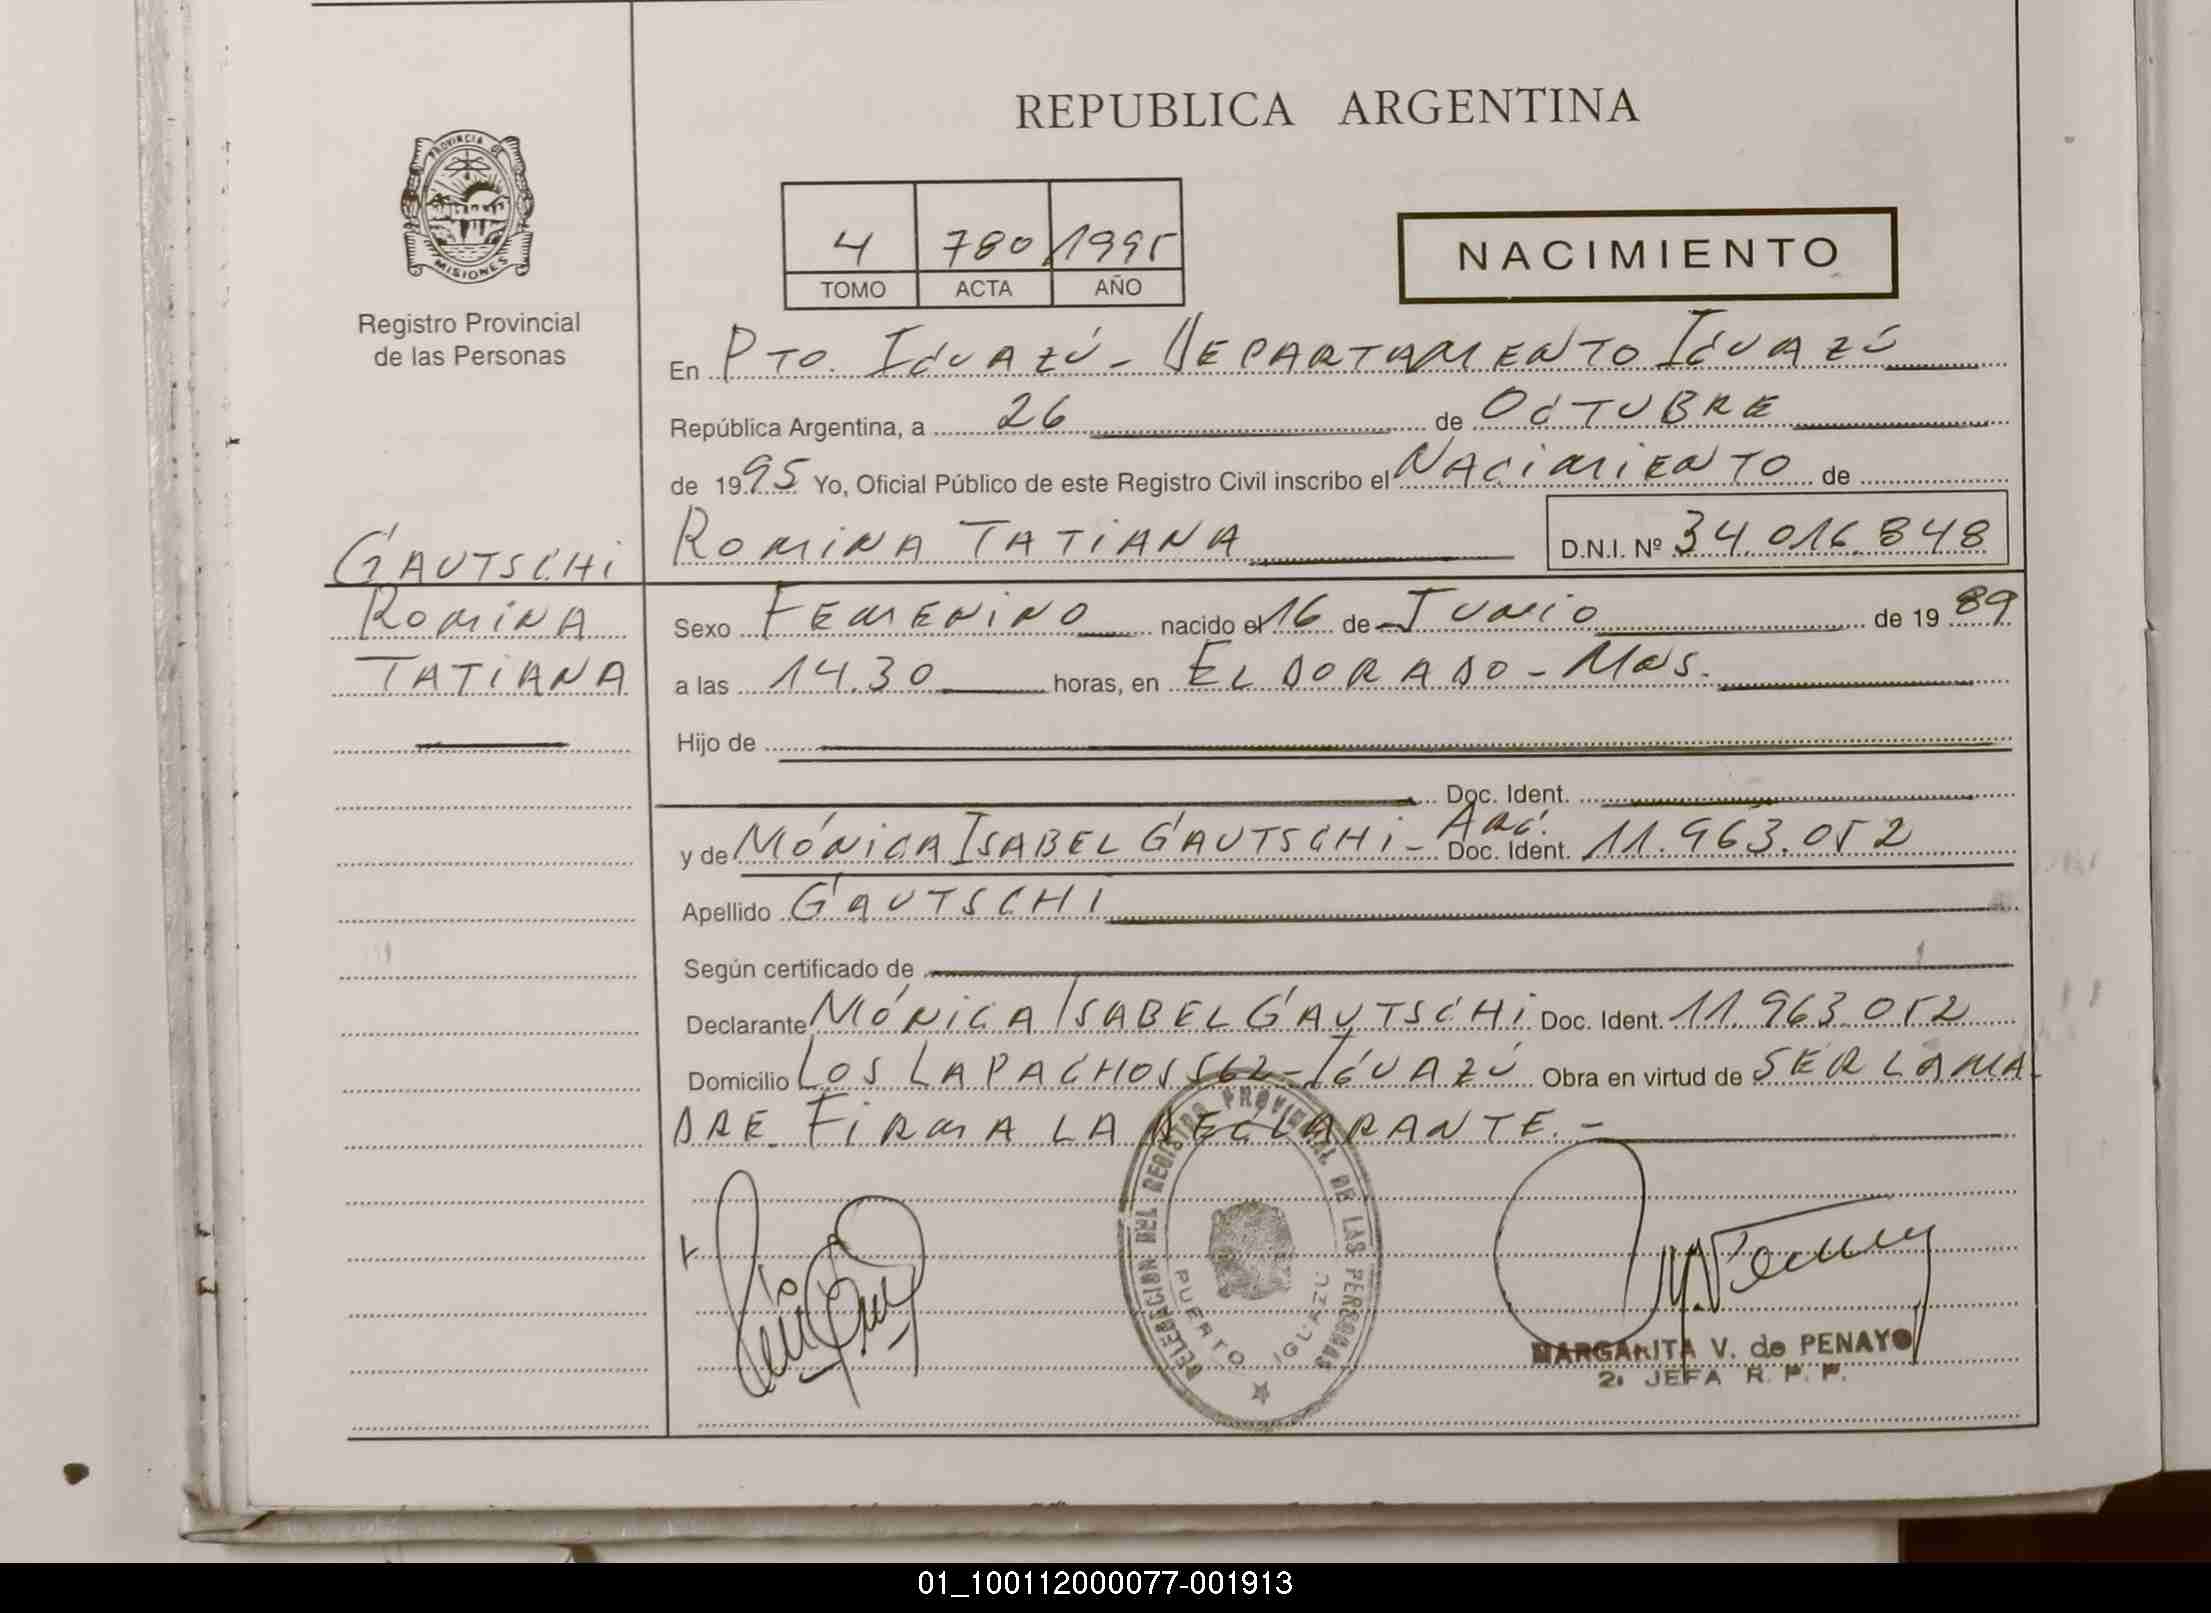 REPUBLICA ARGENTINA
PROVINCIA DE
MISIONES
Registro Provincial
de las Personas
4 780 1995
TOMO ACTA AÑO
NACIMIENTO
En PTO. IGUAZÚ - DEPARTAMENTO IGUAZÚ
República Argentina, a 26 de OCTUBRE
de 1995 Yo, Oficial Público de este Registro Civil inscribo el NACIMIENTO de
ROMINA TATIANA D.N.I. Nº 34.016.848
GAUTSCHI
ROMINA
TATIANA
Sexo FEMENINO nacido el 16 de JUNIO de 1989
a las 14.30 horas, en ELDORADO - MNS.
Hijo de
Doc. Ident.
y de MÓNICA ISABEL GAUTSCHI - ARG. Doc. Ident. 11.963.052
Apellido GAUTSCHI
Según certificado de
Declarante MÓNICA ISABEL GAUTSCHI Doc. Ident. 11.963.052
Domicilio LOS LAPACHOS 562 - IGUAZÚ Obra en virtud de SER LA MA-
DRE. FIRMA LA DECLARANTE. -
DELEGACION DEL REGISTRO PROVINCIAL DE LAS PERSONAS
PUERTO IGUAZU
MARGARITA V. de PENAYO
2ª JEFA R. P. P.
01_100112000077-001913